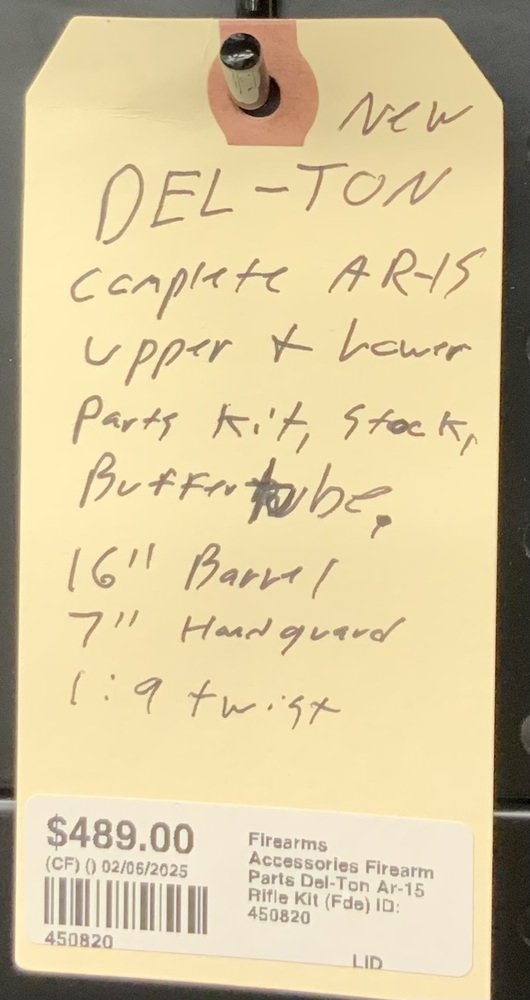 New
DEL-TON
complete AR-15
upper + Lower
Parts Kit, Stock,
Buffer tube,
16" Barrel
7" Handguard
1:9 twist
$489.00
(CF) () 02/06/2025
450820
Firearms
Accessories Firearm
Parts Del-Ton Ar-15
Rifle Kit (Fde) ID:
450820
LID